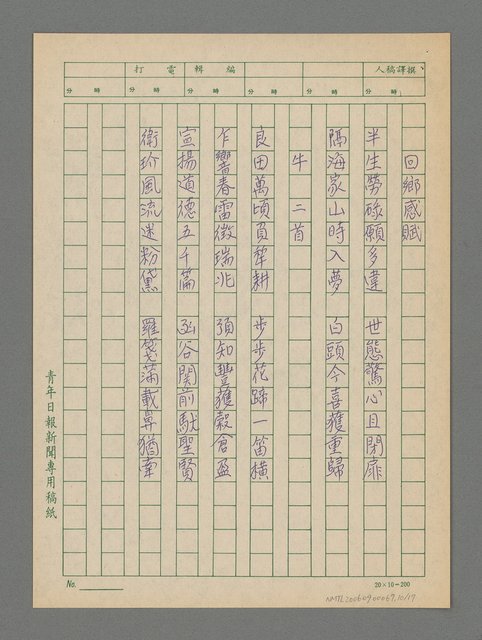 撰譯稿人
編輯
電打
時 分 時 分 時 分 時 分 時 分 時 分
回鄉感賦
半生勞碌願多違 世態驚心且閉扉
隔海家山時入夢 白頭今喜獲重歸
牛 二首
良田萬頃負犂耕 步步花蹄一笛橫
乍響春雷徵瑞兆 預知豐穫穀倉盈
宣揚道德五千篇 函谷關前馱聖賢
衛玠風流迷粉黛 羅箋滿載鼻猶牽
青年日報新聞專用稿紙
No.
20×10=200
NMTL20060900067.10/17